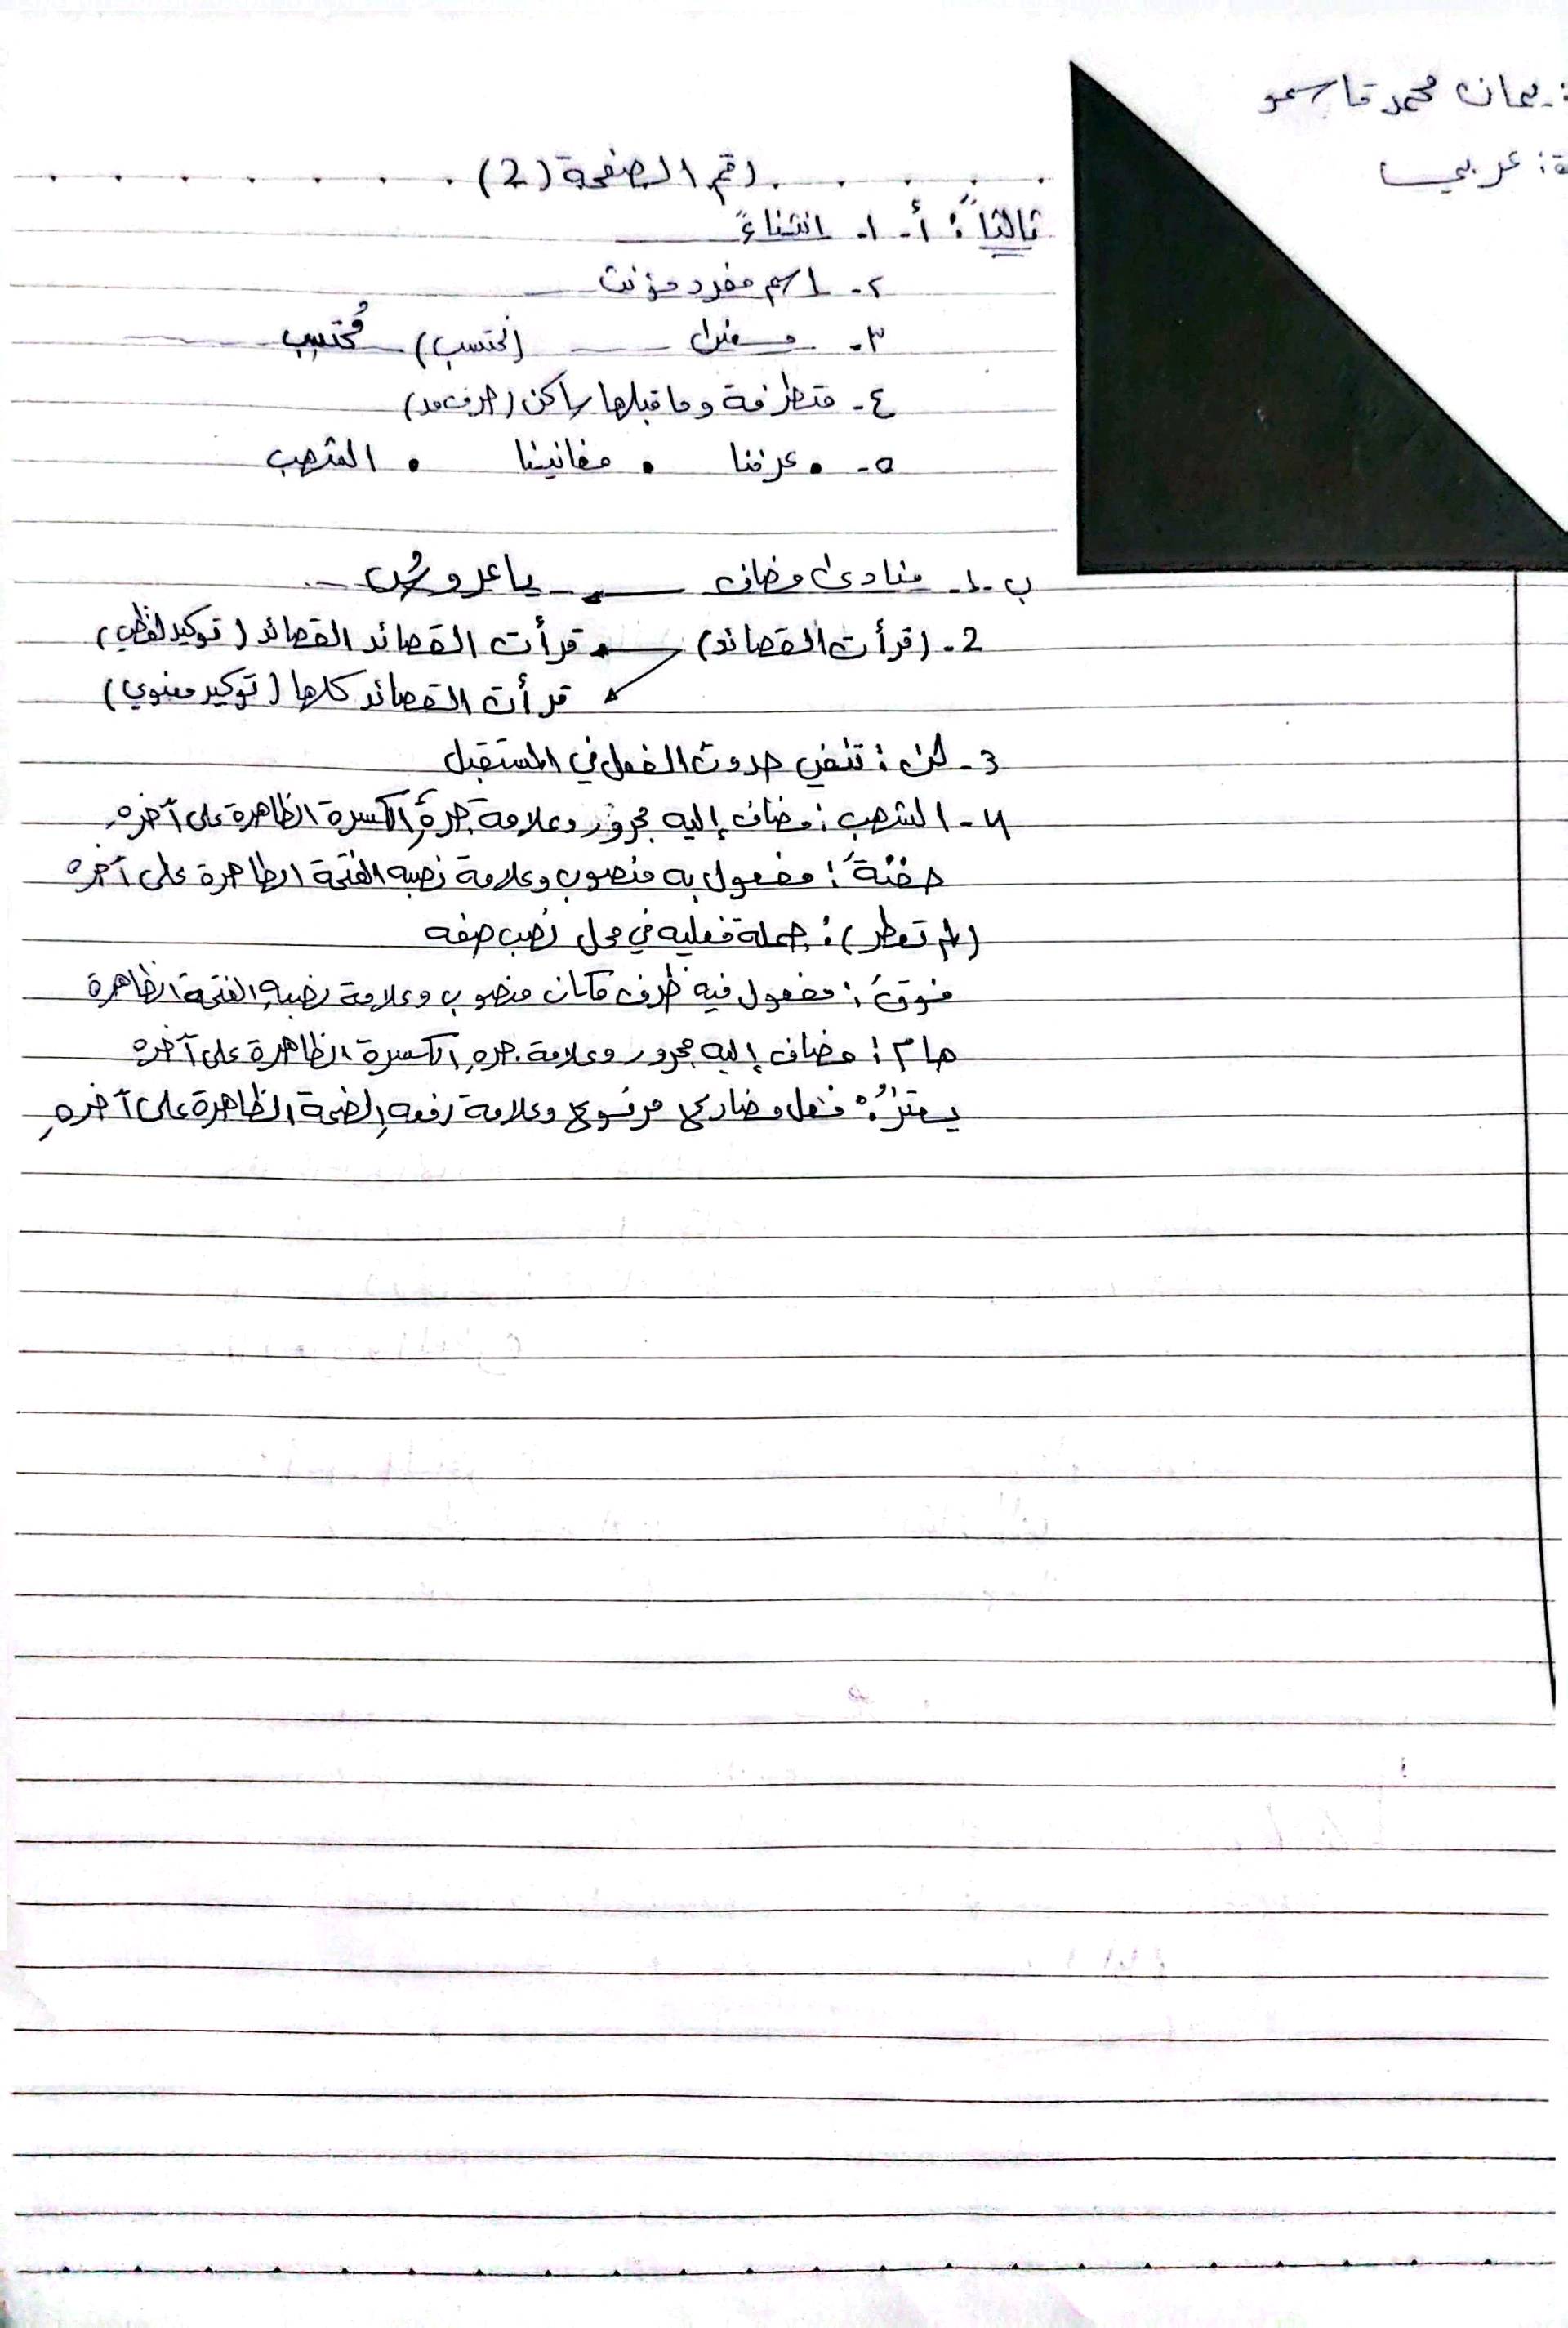 : يمان محمد قاسمو
ة: عربي
رقم الصفحة (2)
ثالثاً: أ- ١- انتشاءً
٢- اسم مفرد مؤنث
٣- (نحتسب) مُحتسِب
٤- متطرفة وما قبلها ساكن (حرف مد)
٥- • عرفنا • مغانينا • الشهب
ب-١- منادى مضاف ← يا عروسُ
2- (قرأت القصائد) ← قرأت القصائد القصائد (توكيد لفظي)
← قرأت القصائد كلها (توكيد معنوي)
3- لن: تنفي حدوث الفعل في المستقبل
4- الشهب: مضاف إليه مجرور وعلامة جره الكسرة الظاهرة على آخره
حفنةً: مفعول به منصوب وعلامة نصبه الفتحة الظاهرة على آخره
(لم تمطر): جملة فعليه في محل نصب صفه
فوقَ: مفعول فيه ظرف مكان منصوب وعلامة نصبه الفتحة الظاهرة
هام: مضاف إليه مجرور وعلامة جره الكسرة الظاهرة على آخره
يعتزُّ: فعل مضارع مرفوع وعلامة رفعه الضمة الظاهرة على آخره